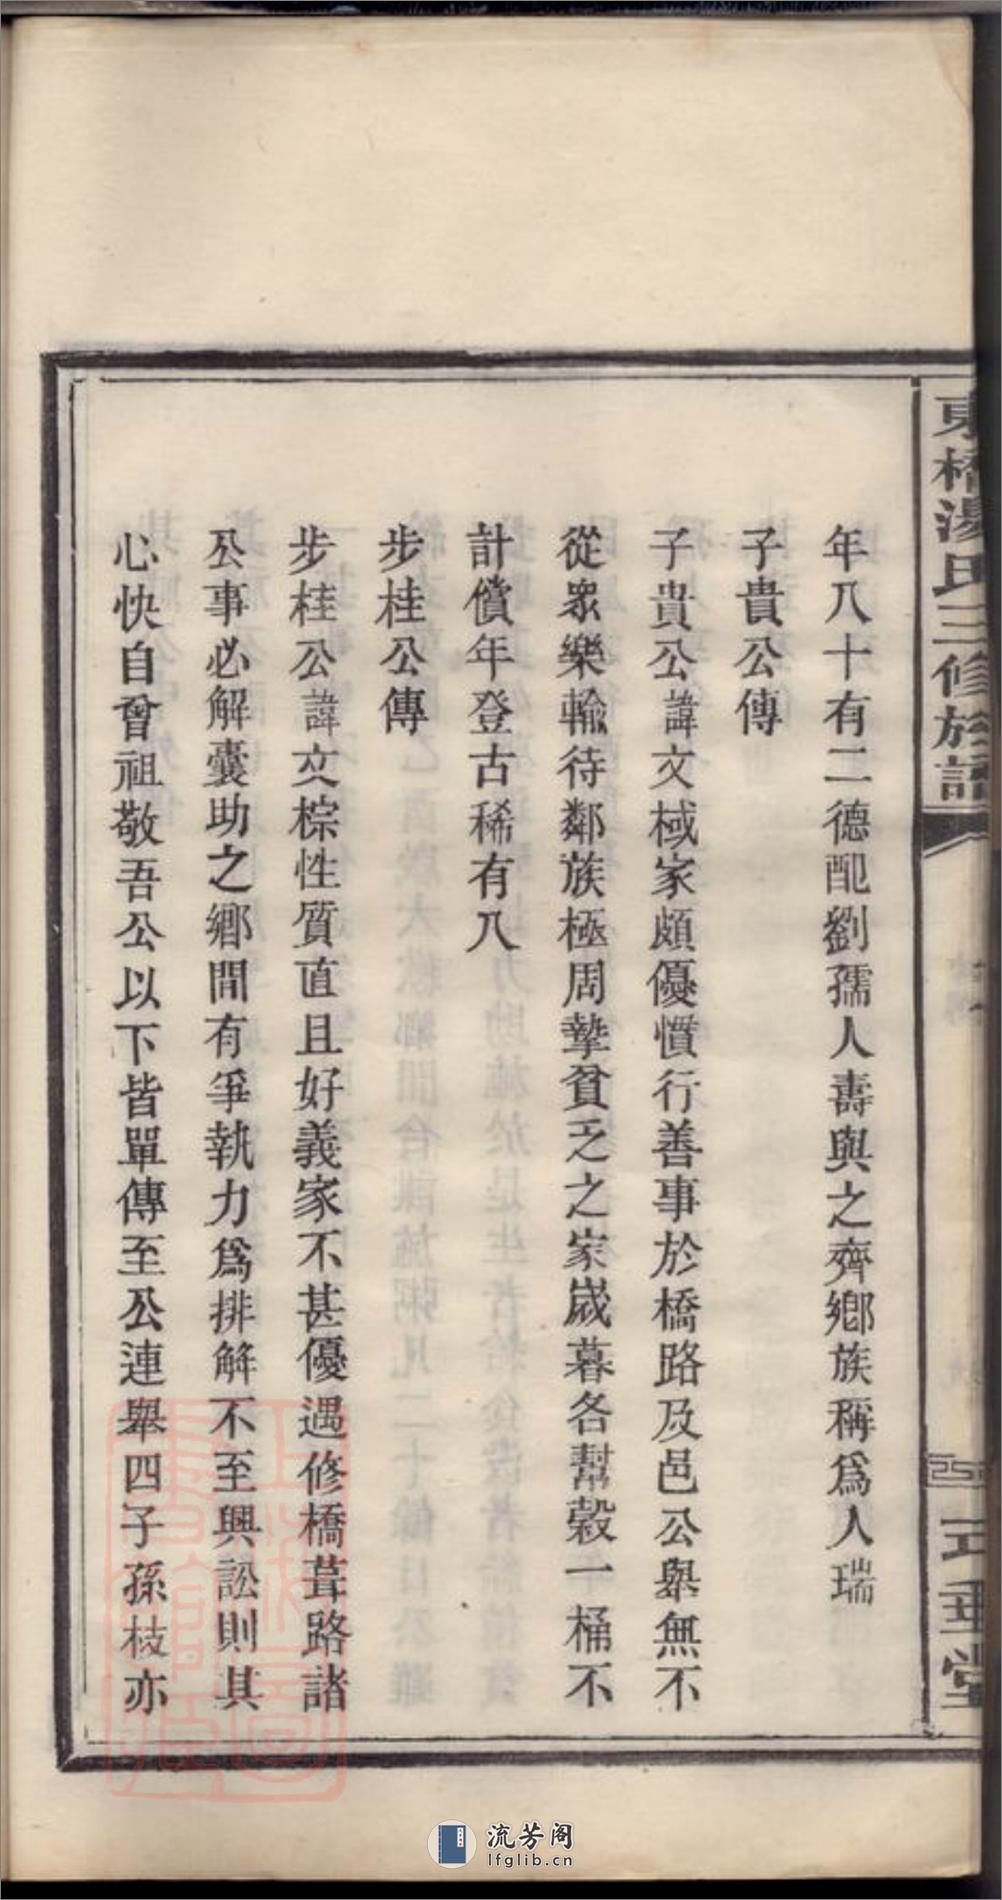 年八十有二德配劉孺人壽與之齊鄉族稱爲人瑞
子貴公傳
子貴公諱文棫家頗優慣行善事於橋路及邑公舉無不
從眾樂輸待鄰族極周摯貧乏之家歲暮各幫穀一桶不
計償年登古稀有八
步桂公傳
步桂公諱文棕性質直且好義家不甚優遇修橋葺路諸
公事必解囊助之鄉閒有爭執力爲排解不至興訟則其
心快自曾祖敬吾公以下皆單傳至公連舉四子孫枝亦
東橋湯氏三修族譜
流芳阁
lfglib.cn